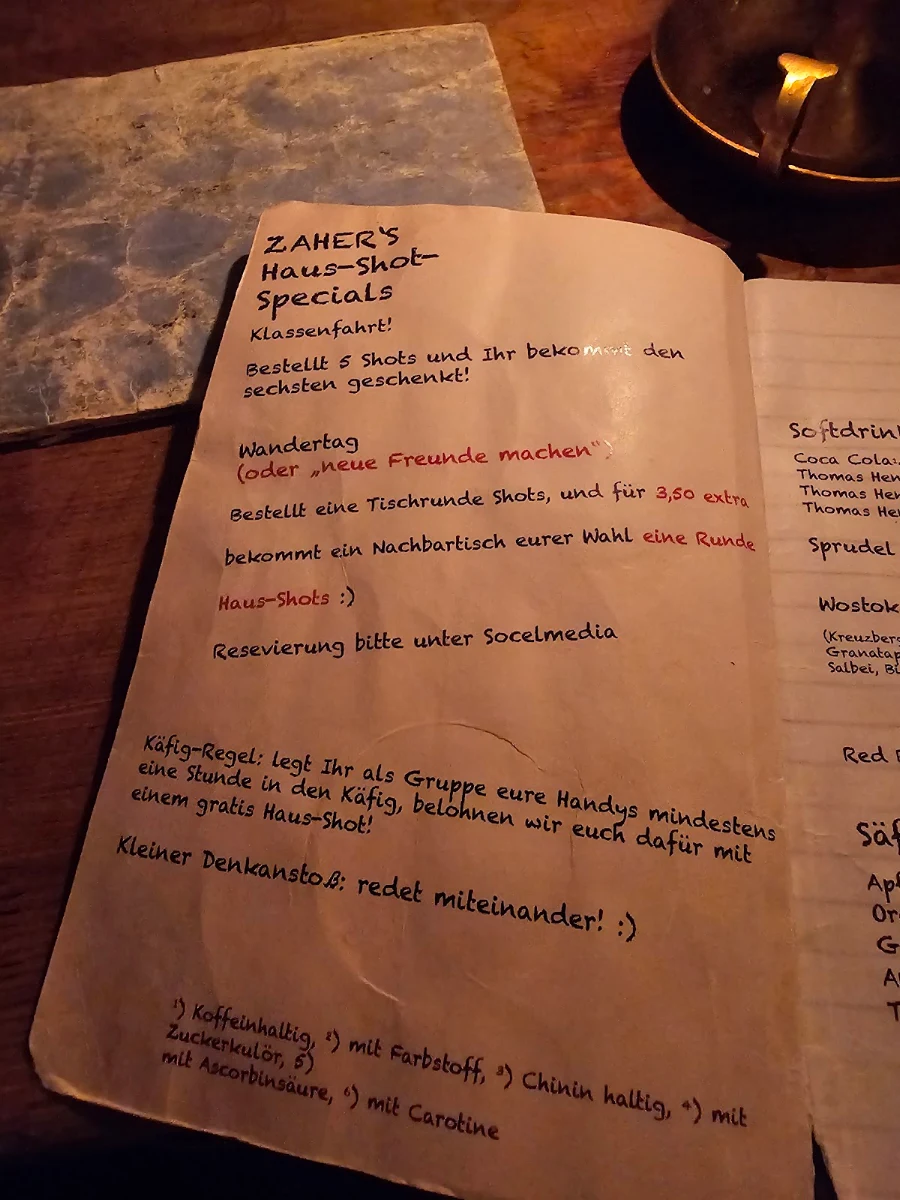 ZAHER'S
Haus-Shot-
Specials
Klassenfahrt!
Bestellt 5 Shots und Ihr bekommt den
sechsten geschenkt!
Wandertag
(oder „neue Freunde machen“)
Bestellt eine Tischrunde Shots, und für 3,50 extra
bekommt ein Nachbartisch eurer Wahl eine Runde
Haus-Shots :)
Resevierung bitte unter Socelmedia
Käfig-Regel: legt Ihr als Gruppe eure Handys mindestens
eine Stunde in den Käfig, belohnen wir euch dafür mit
einem gratis Haus-Shot!
Kleiner Denkanstoß: redet miteinander! :)
¹) Koffeinhaltig, ²) mit Farbstoff, ³) Chinin haltig, ⁴) mit
Zuckerkulör, 5)
mit Ascorbinsäure, ⁶) mit Carotine
Coca Cola
Thomas
Thomas
Thomas
Sprudel
Wostok
Salbei,
Red